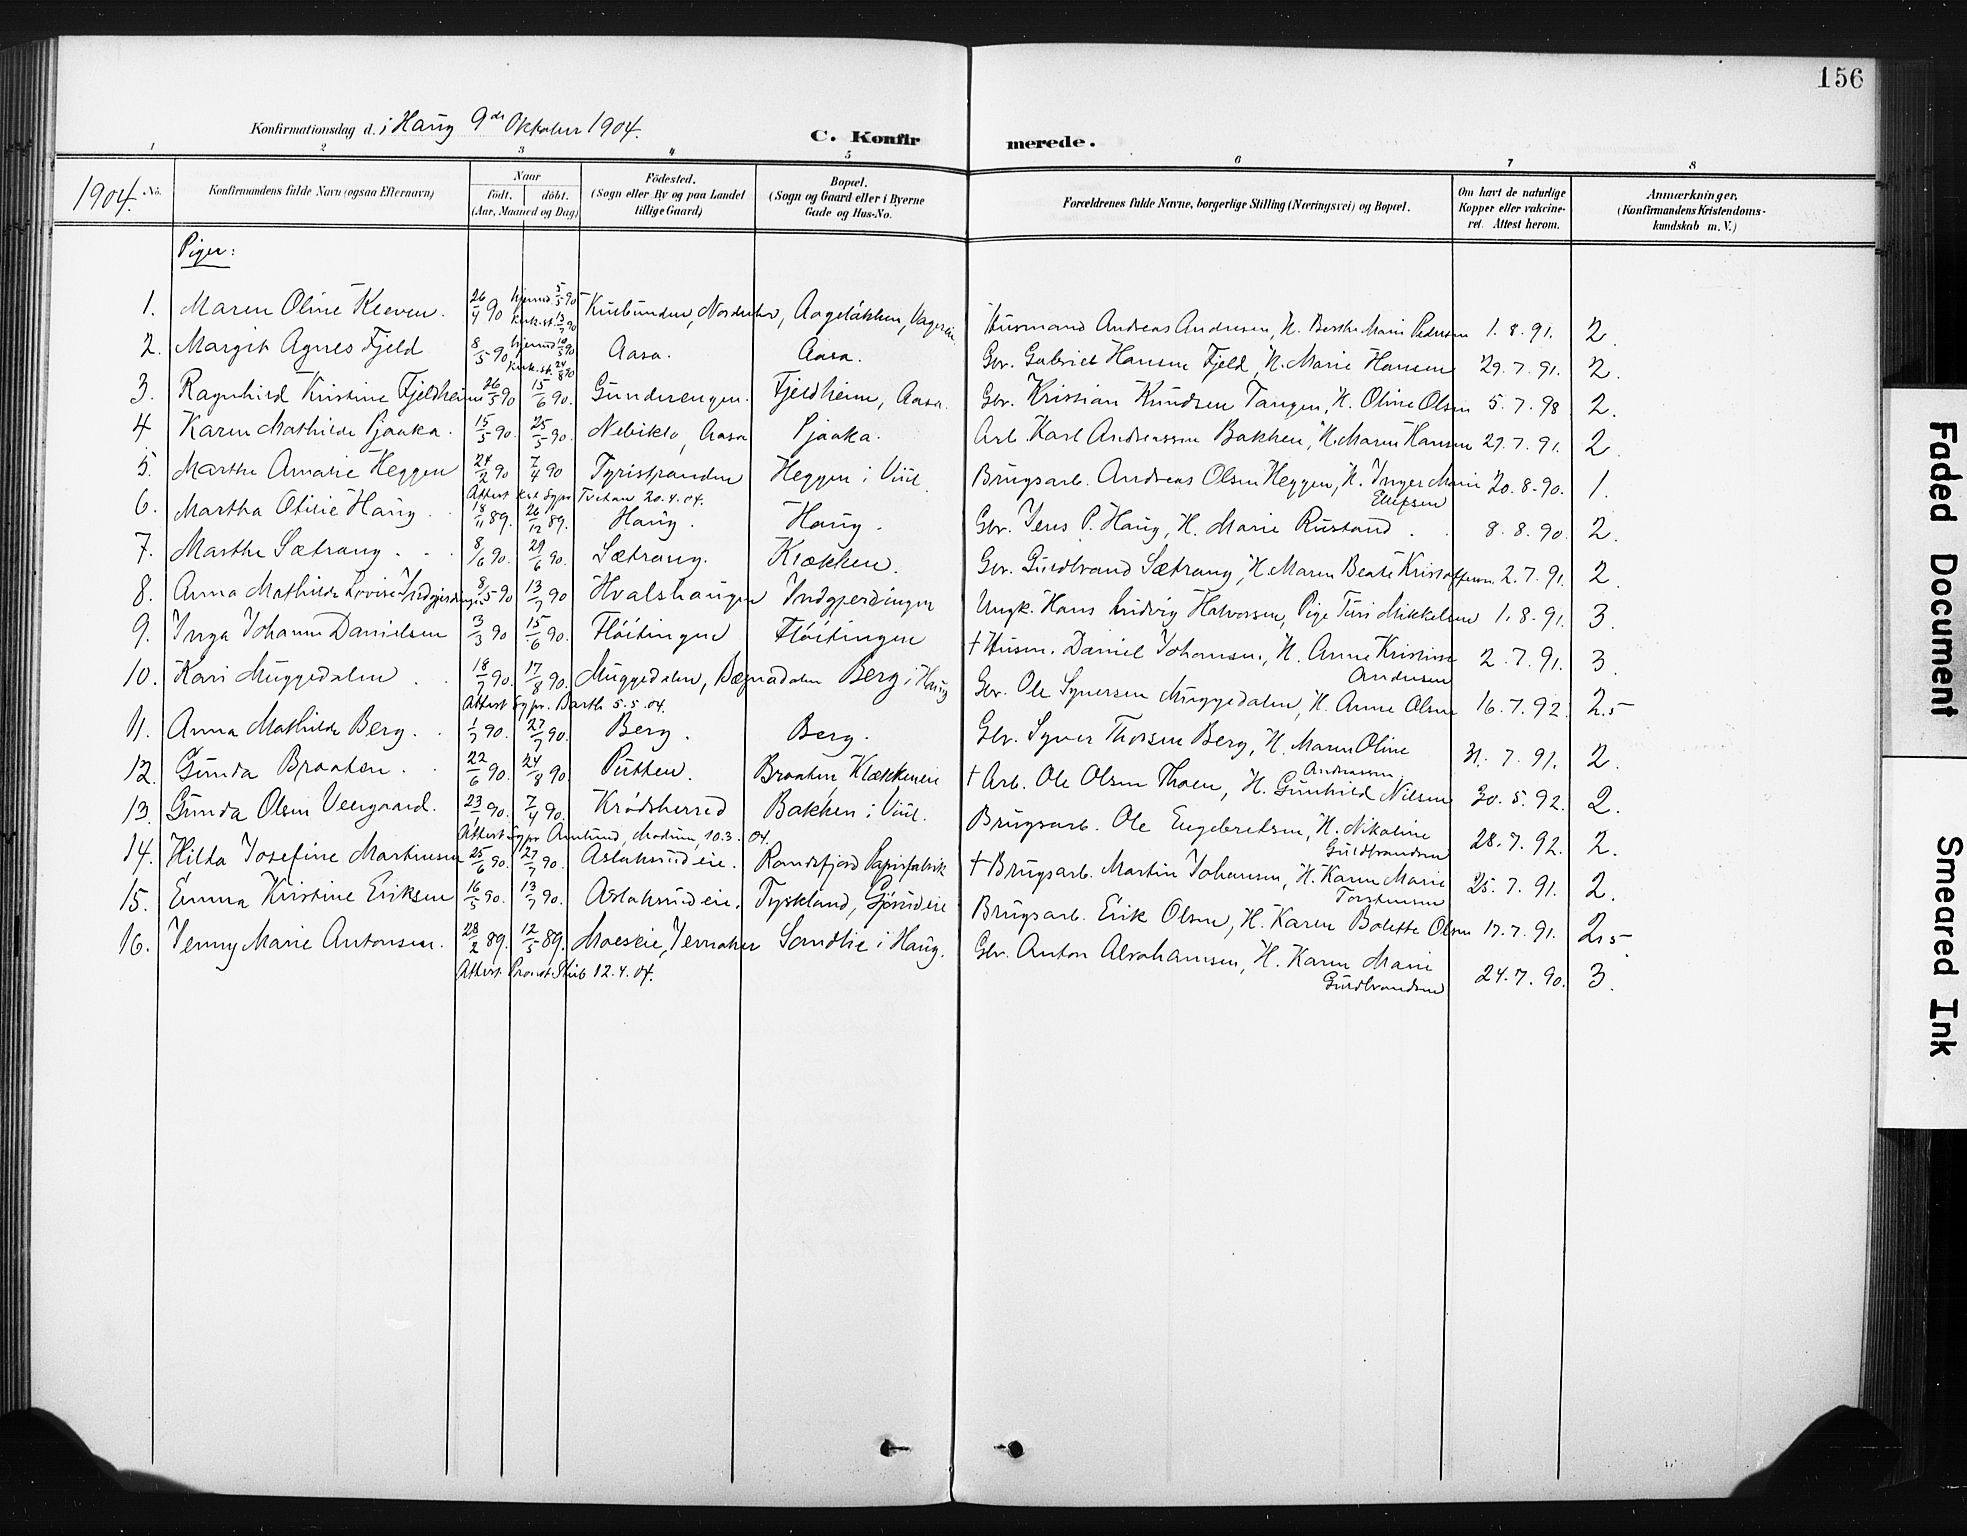 156
Konfirmationsdag d. i Haug 9de Oktober 1904.
C. Konfirmerede.
1 2 3 4 5 6 7 8
1904. No.
Konfirmandens fulde Navn (ogsaa Efternavn)
Naar
födt. döbt.
(Aar, Maaned og Dag)
Födested.
(Sogn eller By og paa Landet
tillige Gaard)
Bopæl.
(Sogn og Gaard eller i Byerne
Gade og Hus-No.
Forældrenes fulde Navne, borgerlige Stilling (Næringsvei) og Bopæl.
Om havt de naturlige
Kopper eller vakcine-
ret. Attest herom.
Anmærkninger.
(Konfirmandens Kristendoms-
kundskab m. V.)
Piger:
1. Maren Oline Kleven. 26/4 90 hjemd. 5/5 90 kirk. st. 13/7 90 Norderhov, Husmand Andreas Andersen, H. Berthe Marie Pedersen 1.8.91. 2.
2. Margit Agnes Fjeld 8/5 90 hjemd 10/5 90 kirk. st. 24/8 90 Aasa. Aasa. Gbr. Gabriel Hansen Fjeld, H. Marie Hansen 29.7.91. 2.
3. Ragnhild Kristine Fjeldheim 26/5 90 15/6 90. Gunderengen. Fjeldheim, Aasa. Gbr. Kristian Knudsen Tangen, H. Oline Olsen 5.7.98 2.
4 Karen Mathilde Pjaaka. 15/5 90. 25/5 90. Aasa Pjaaka. Arb. Karl Andreassen Bakken, H. Maren Hansen 29.7.91. 2
5. Marthe Amalie Heggen 24/2 90 7/4 90 Tyristranden Heggen i Viul. Brugsarb. Andreas Olsen Heggen, H. Inger Marie Ellefsen 20.8.90. 1.
Attest 20.4.04.
6. Martha Otilie Haug. 18/11 89. 26/12 89. Haug. Haug. Gbr. Jens P. Haug, H. Marie Rustand. 8.8.90. 2.
7. Marthe Sætrang. 8/6 90. 29/6 90. Sætrang. Klækken. Gbr. Guldbrand Sætrang, H. Maren Beate Kristoffersen 2.7.91. 2.
8. Anna Mathilde Lovise Indgjerdingen 8/5 90 13/7 90 Hvalshaugen Indgjerdingen Ungk. Hans Ludvig Halvorsen, Pige Turi Mikkelsen 1.8.91. 3.
9. Inga Johanne Danielsen 3/3 90 15/6 90. Flöitingen Flöitingen † Husm. Daniel Johansen, H. Anne Kristine Andersen 2.7.91. 3.
10. Kari Muggedalen. 18/7 90. 17/8 90. Muggedalen, Bægnadalen Berg i Haug Gbr. Ole Syversen Muggedalen, H. Anne Olsen 16.7.92. 2.5
Attest Sgpr. Barth 5.5.04.
11. Anna Mathilde Berg. 1/7 90. 27/7 90. Berg. Berg. Gbr. Syver Thorsen Berg, H. Maren Oline Andreassen 31.7.91. 2.
12. Gunda Braaten. 22/6 90. 24/8 90. Putten. Braaten Klækkeneie † Arb. Ole Olsen Thoen, H. Gunhild Nilsen 30.5.92. 2.
13. Gunda Olsen Veergaard. 23/1 90. 7/4 90. Krödsherred Bakken i Viul. Brugsarb. Ole Engebretsen, H. Nikoline Guldbrandsen 28.7.92. 2.
Attest Sgpr. Modum, 10.3.04.
14. Hilda Josefine Martinsen 25/6 90. 27/7 90. Aslaksrudeie. Randsfjord Papirfabrik † Brugsarb. Martin Johansen, H. Karen Marie Torstensen 25.7.91. 2.
15. Emma Kristine Eriksen 16/5 90. 13/7 90. Aslaksrudeie. Tyskland, Brugsarb. Erik Olsen, H. Karen Bolette Olsen 17.7.91. 2.5
16. Jenny Marie Antonsen. 28/2 89. 12/5 89. Moeseie, Jevnaker Sandlie i Haug. Gbr. Anton Abrahamsen, H. Karen Marie Guldbrandsen 24.7.90. 3.
Attest Provst 12.4.04.
Faded Document
Smeared Ink